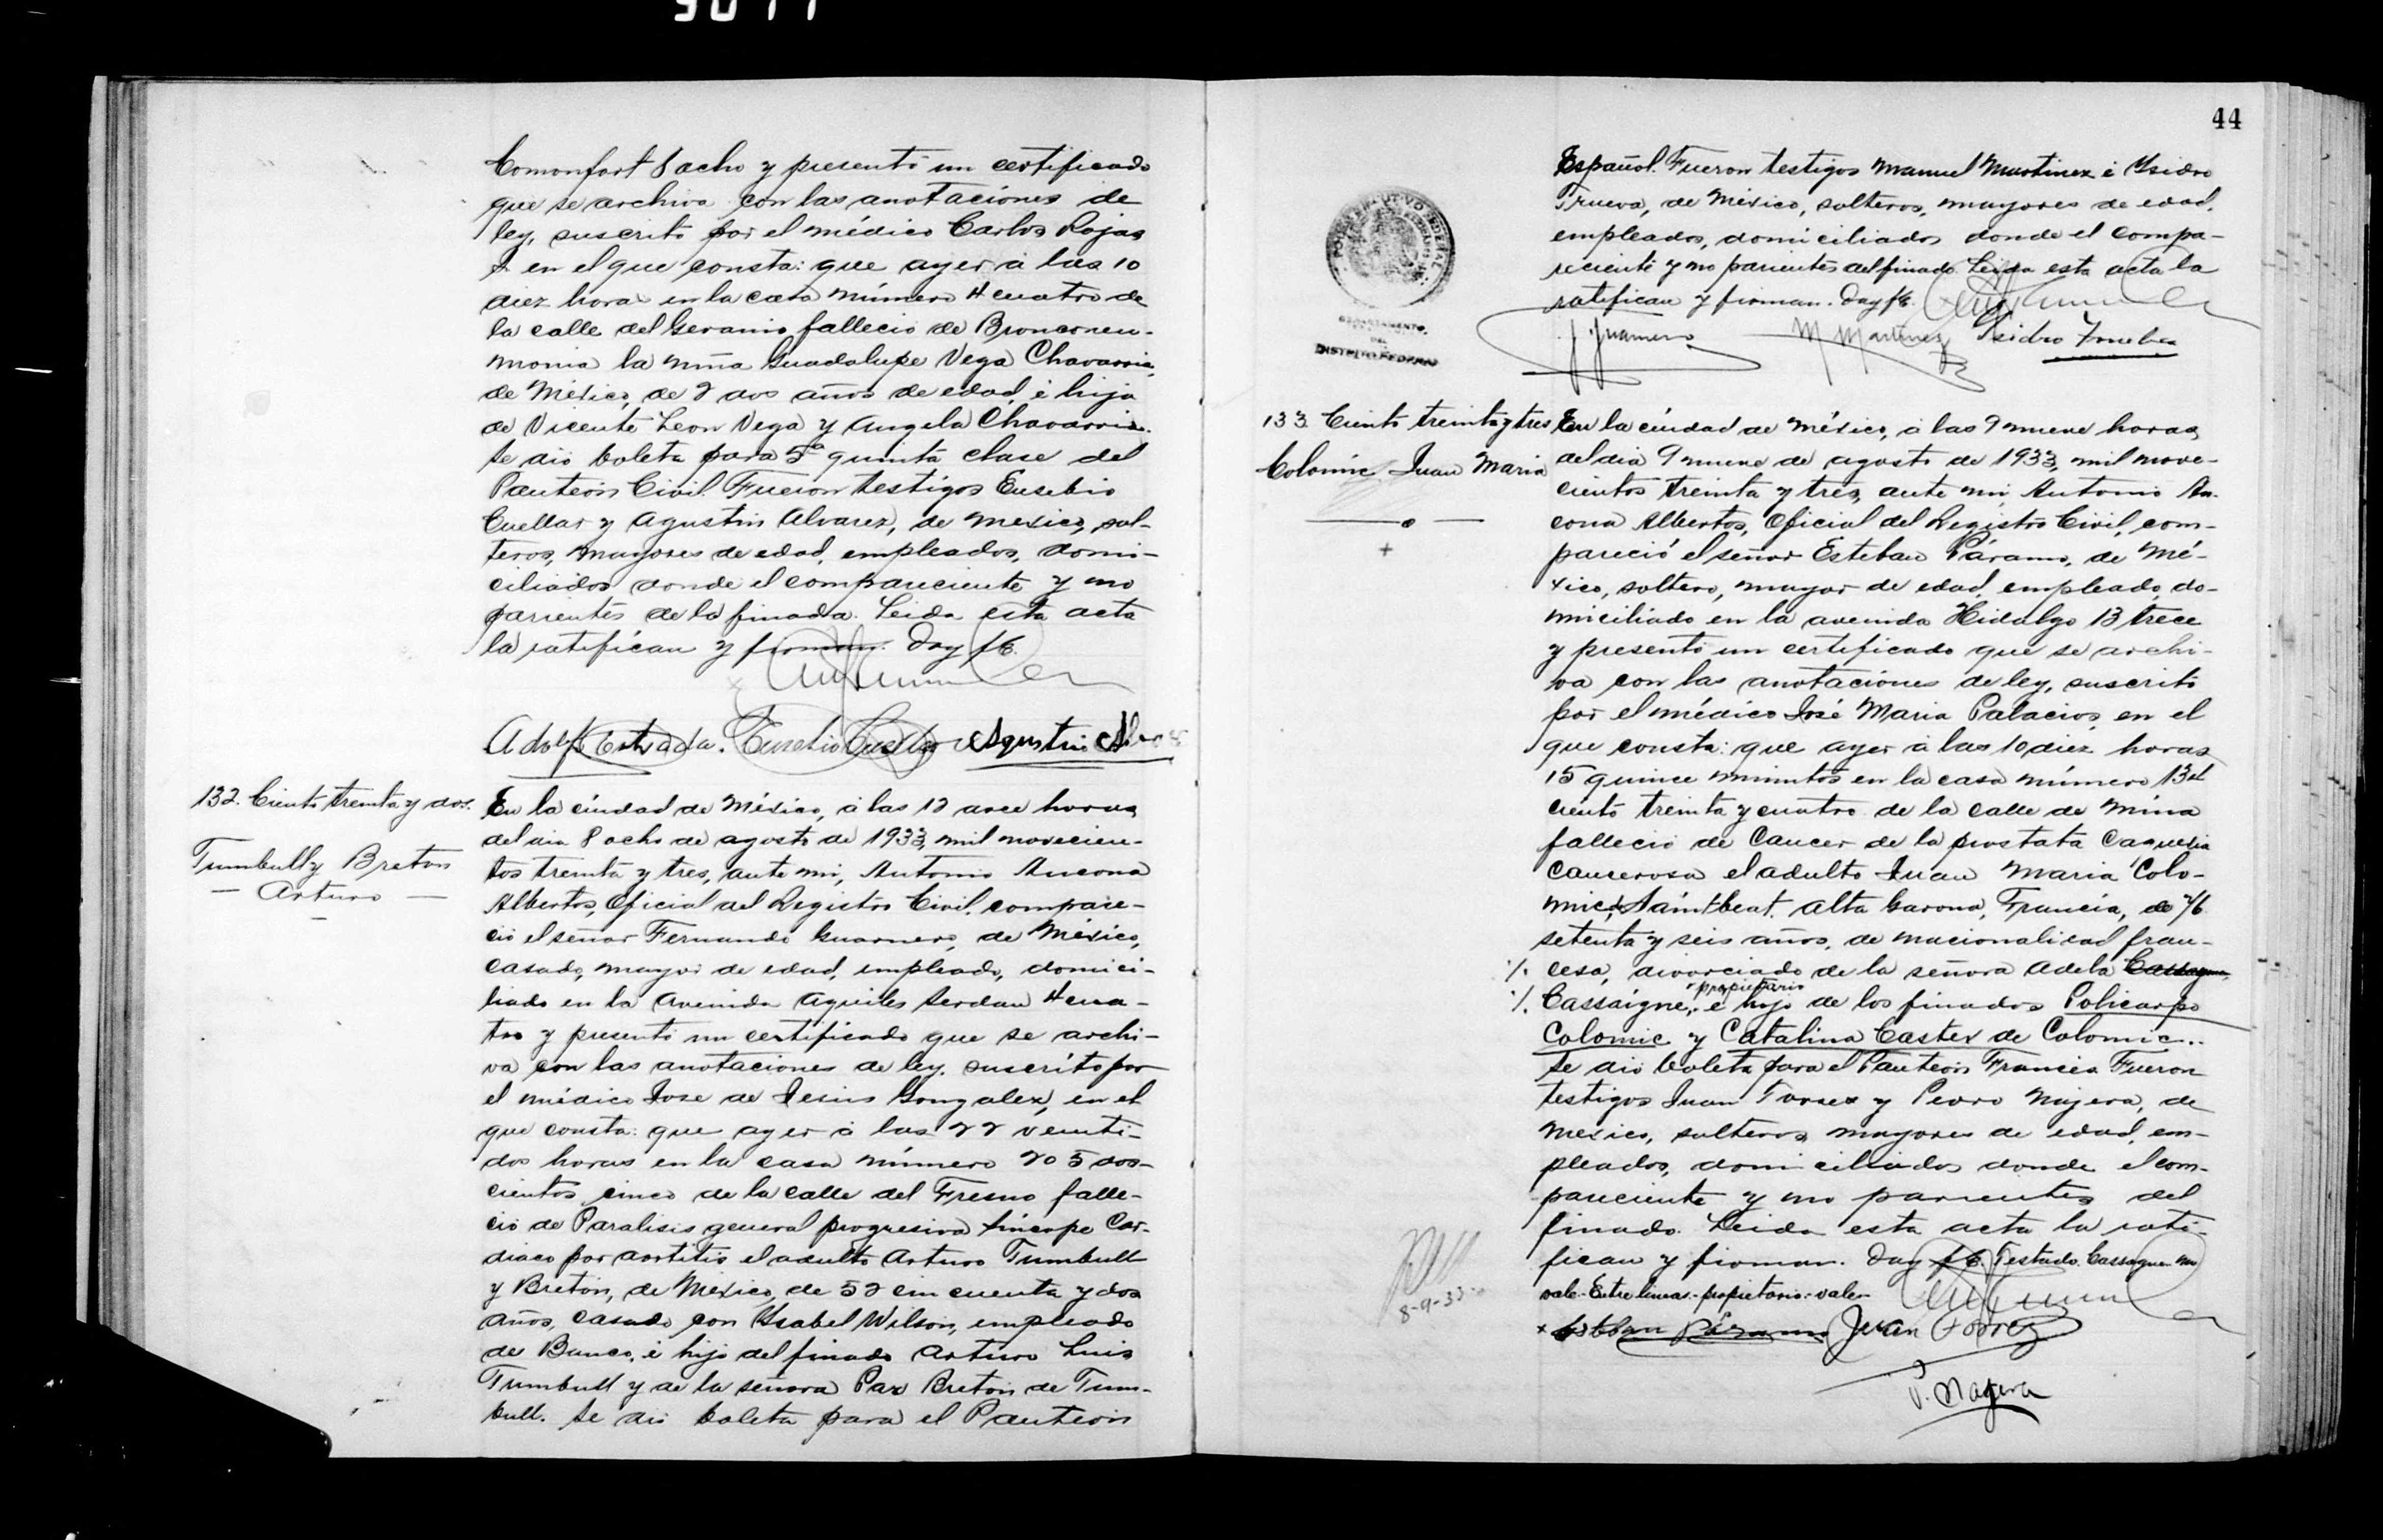 44
Comonfort 8 ocho y presentó un certificado
que se archiva con las anotaciones de
ley, suscrito por el médico Carlos Rojas
en el que consta: que ayer á las 10
diez horas en la casa número 4 cuatro de
la calle del Geranio falleció de Bronconeu-
monia la niña Guadalupe Vega Chavarria,
de México, de 2 dos años de edad, é hija
de Vicente Leon Vega y Angela Chavarria.
Se dió boleta para 5a quinta clase del
Panteón Civil. Fueron testigos Eusebio
Cuellar y Agustin Alvarez, de Mexico, sol-
teros, mayores de edad, empleados, domi-
ciliados donde el compareciente y no
parientes de la finada. Leida esta acta
la ratifican y firman. Doy fé.
Adolfo Estrada. Eusebio Cuellar Agustin Alvarez
132. Ciento treinta y dos.
Turnbull y Breton
— Arturo —
En la ciudad de México, á las 12 doce horas
del dia 8 ocho de agosto de 1933, mil novecien-
tos treinta y tres, ante mi, Antonio Ancona
Albertos, Oficial del Registro Civil, compare-
ció el señor Fernando Guarnero, de México,
casado, mayor de edad, empleado, domici-
liado en la Avenida Aquiles Serdan 4 cua-
tro y presentó un certificado que se archi-
va con las anotaciones de ley, suscrito por
el médico Jose de Jesús Gonzalez, en el
que consta: que ayer á las 22 veinti-
dos horas en la casa número 205 dos-
cientos cinco de la calle del Fresno falle-
ció de Paralisis general progresiva síncope Car-
diaco por aortitis el adulto Arturo Turnbull
y Bretón, de México, de 52 cincuenta y dos
años, casado con Ysabel Wilson, empleado
de Banco, é hijo del finado Arturo Luis
Turnbull y de la señora Paz Bretón de Turn-
bull. Se dió boleta para el Panteón
Español. Fueron testigos Manuel Martinez é Ysidro
Trueva, de México, solteros, mayores de edad,
empleados, domiciliados donde el compa-
reciente y no parientes del finado. Leida esta acta la
ratifican y firman. Doy fé.
M Martinez Isidro Trueba
PODER EJECUTIVO FEDERAL
DEPARTAMENTO
DEL
DISTRITO FEDERAL
133. Ciento treinta y tres
Colomic Juan Maria
En la ciudad de México, á las 9 nueve horas
del dia 9 nueve de agosto de 1933, mil nove-
cientos treinta y tres, ante mi, Antonio An-
cona Albertos, Oficial del Registro Civil, com-
pareció el señor Esteban Páramo, de Mé-
xico, soltero, mayor de edad, empleado, do-
miciliado en la avenida Hidalgo 13 trece
y presentó un certificado que se archi-
va con las anotaciones de ley, suscrito
por el médico José Maria Palacios, en el
que consta: que ayer á las 10 diez horas
15 quince minutos en la casa número 134
ciento treinta y cuatro de la calle de Mina
falleció de Cancer de la prostata Caquexia
Cancerosa el adulto Juan Maria Colo-
mic, Saintbeat, Alta Garona, Francia, de 76
setenta y seis años, de nacionalidad fran-
cesa, divorciado de la señora Adela Cassagne
propietario
Cassaigne, é hijo de los finados Policarpo
Colomic y Catalina Castex de Colomic..
Se dió boleta para el Panteón Francés. Fueron
testigos Juan Torrez y Pedro Najera, de
Mexico, solteros, mayores de edad, em-
pleados, domiciliados donde el com-
pareciente y no parientes del
finado. Leida esta acta la rati-
fican y firman. Doy fé. Testado. Cassagne. no
vale. Entre lineas. propietario. vale.
Esteban Páramo Juan Torrez
P. Nagera
8-9-33